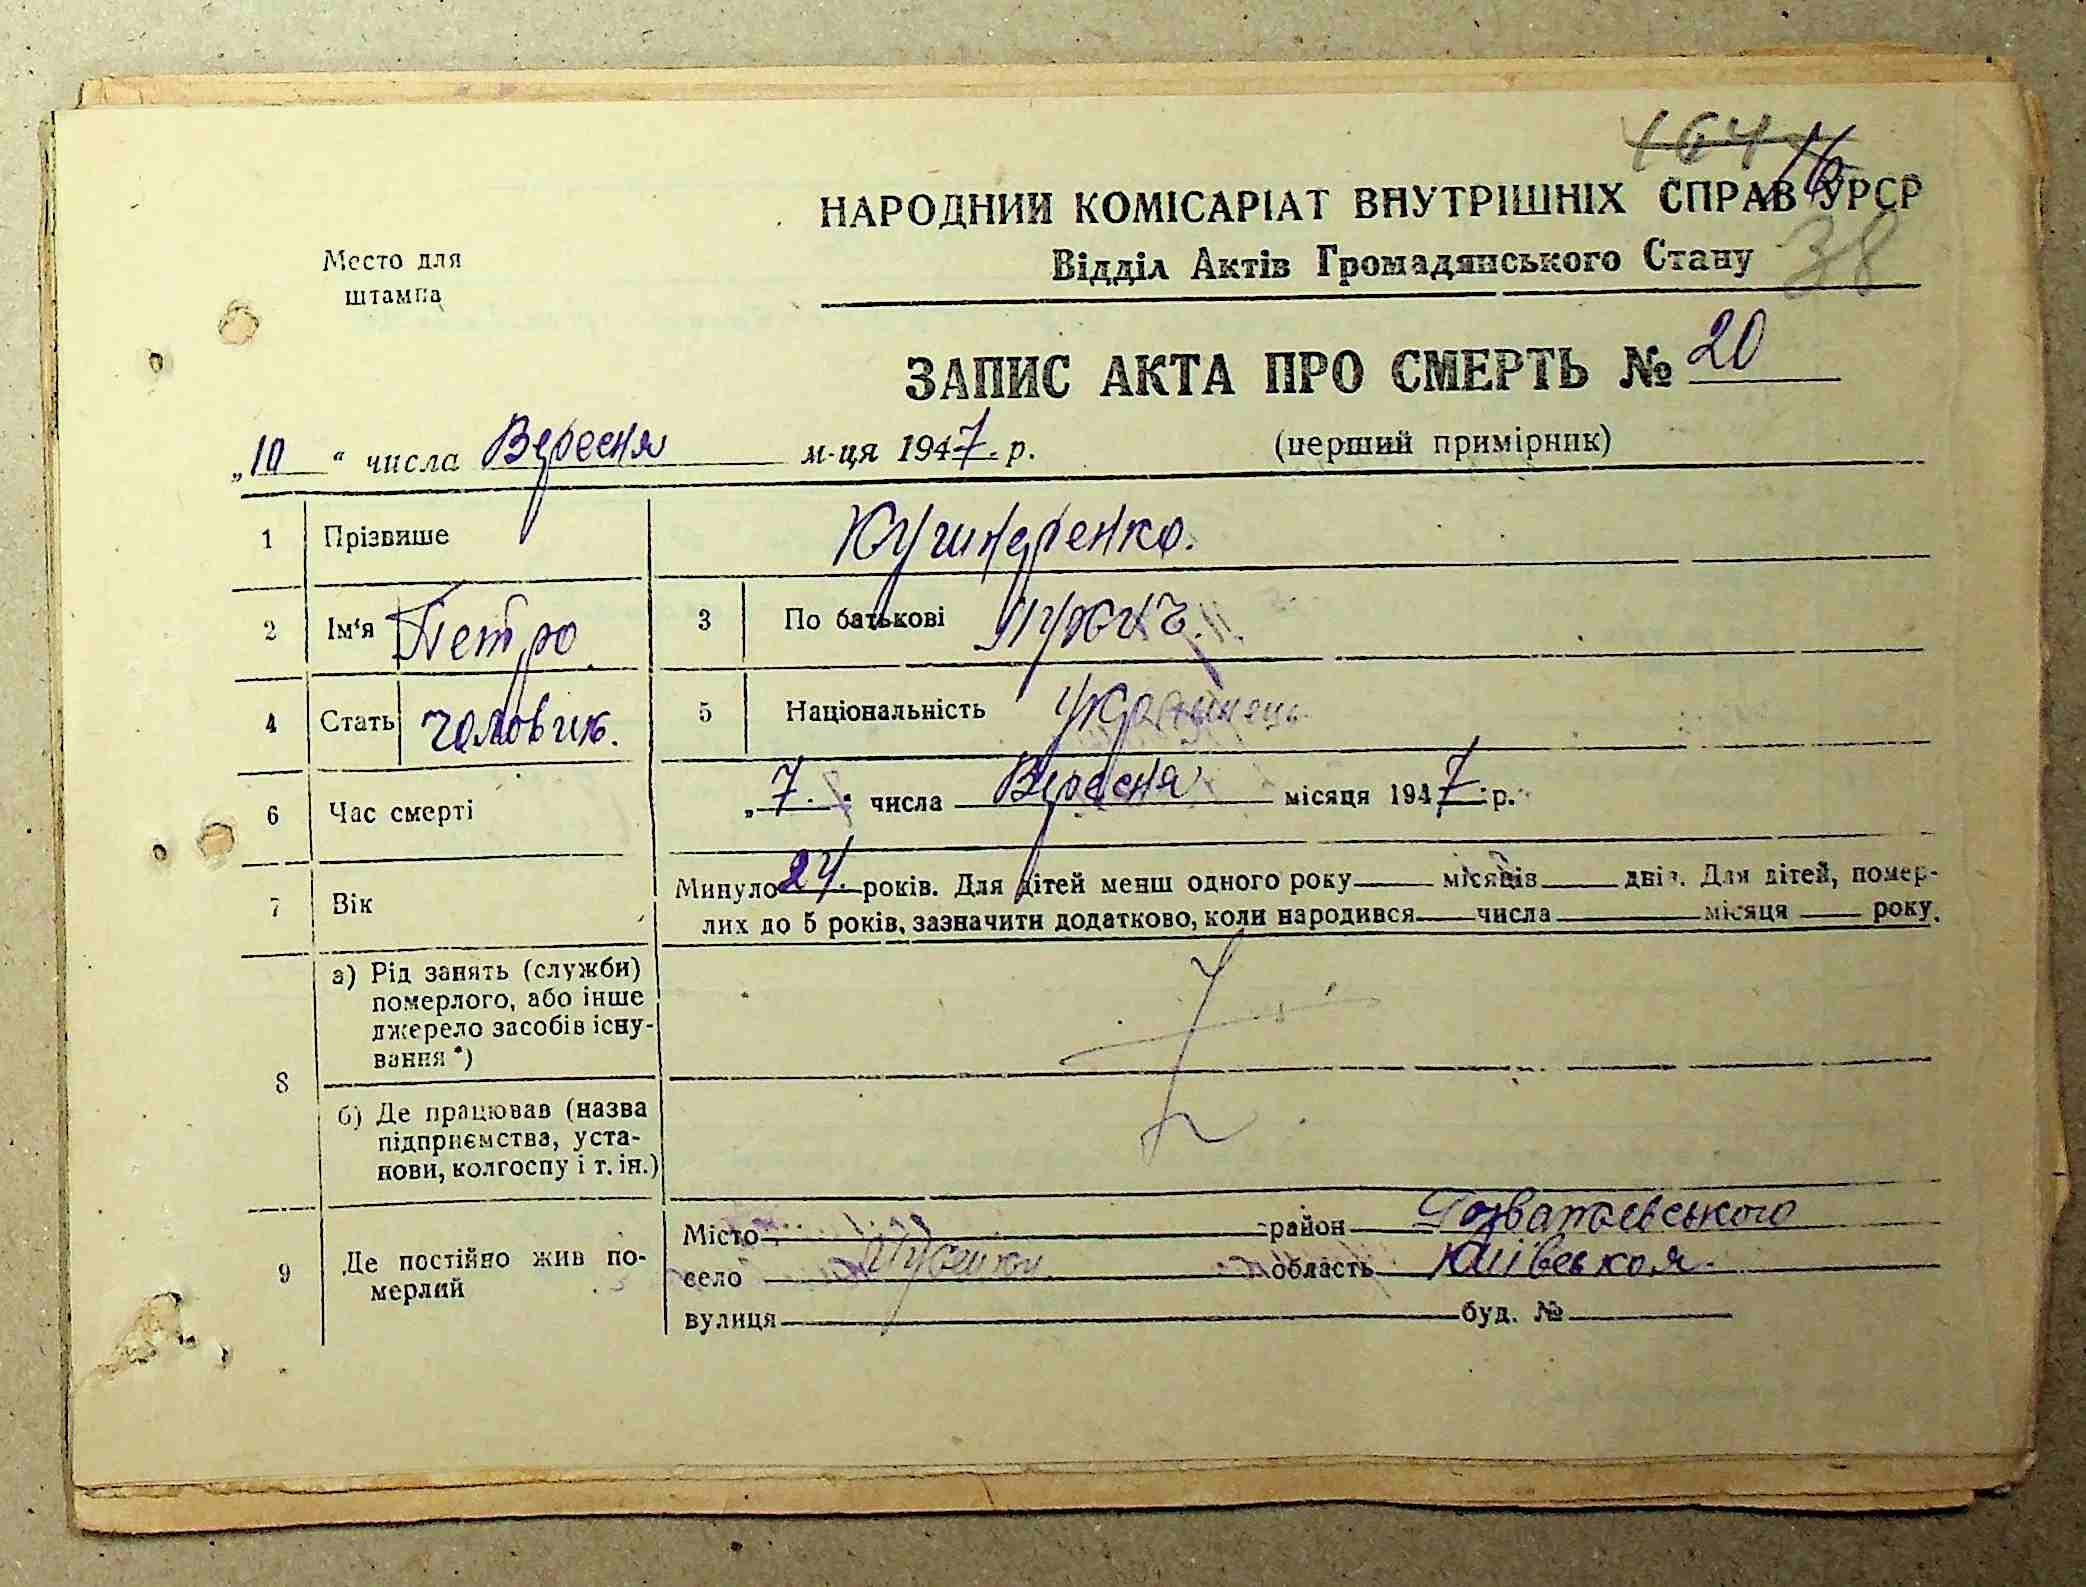 164 16
НАРОДНИЙ КОМІСАРІАТ ВНУТРІШНІХ СПРАВ УРСР
Відділ Актів Громадянського Стану 38
Место для
штампа
ЗАПИС АКТА ПРО СМЕРТЬ № 20
„10“ числа Вересня м-ця 1947 р. (перший примірник)
1 Прізвище Кушнеренко.
2 Ім‘я Петро 3 По батькові
4 Стать чоловик. 5 Національність Украинець
6 Час смерті „7.“ числа Вересня місяця 1947 р.
7 Вік Минуло 24. років. Для дітей менш одного року місяців днів. Для дітей, помер-
лих до 5 років, зазначити додатково, коли народився числа місяця року.
8 а) Рід занять (служби)
померлого, або інше
джерело засобів існу-
вання *)
б) Де працював (назва
підприємства, уста-
нови, колгоспу і т. ін.)
9 Де постійно жив по-
мерлий
Місто район
село область Київськоя.
вулиця буд. №